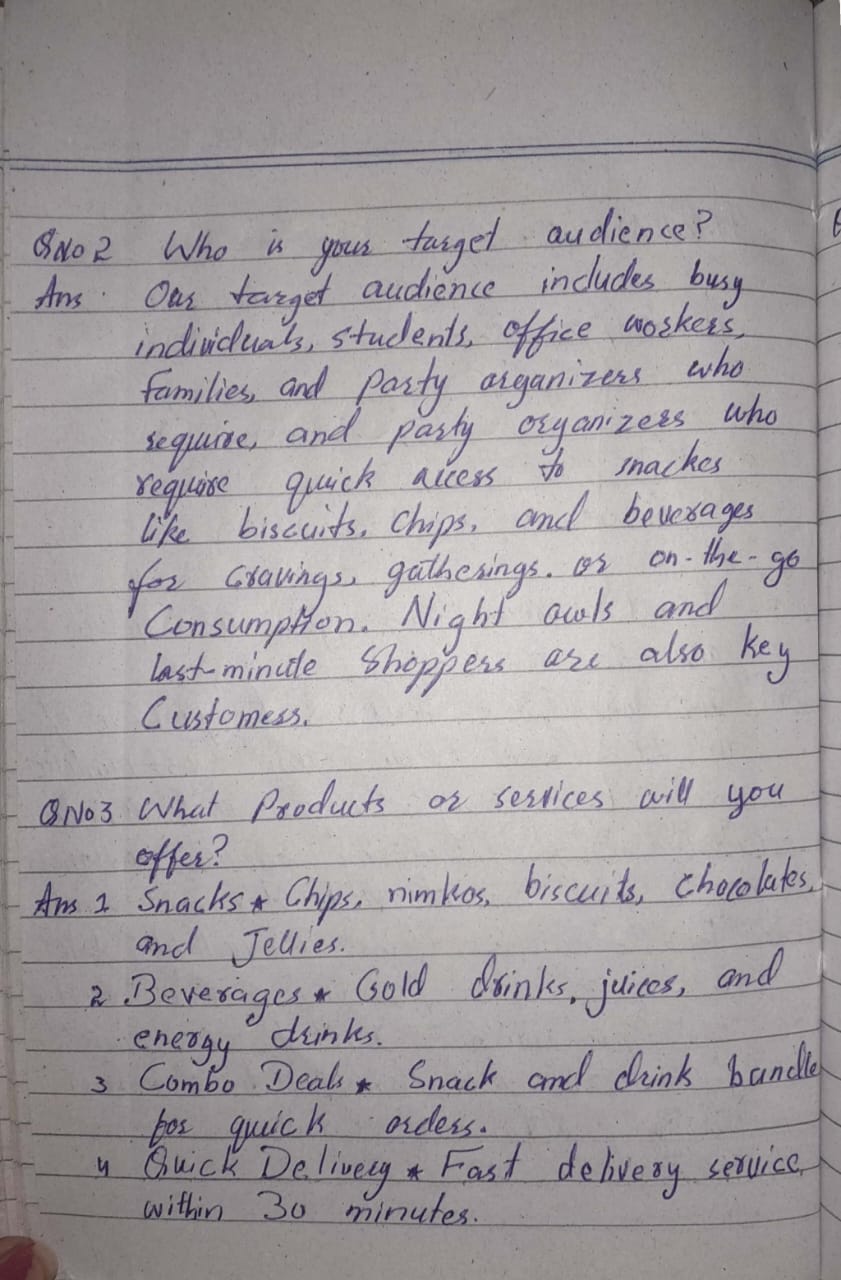 QNo 2 Who is your target audience?
Ans. Our target audience includes busy
individuals, students, office workers,
families, and party organizers who
require, and party organizers who
require quick access to snackes
like biscuits, chips, and beverages
for cravings, gatherings. or on-the-go
Consumption. Night owls and
last-minute shoppers are also key
Customers.
QNo3 What Products or services will you
offer?
Ans 1 Snacks * Chips, nimkos, biscuits, chocolates,
and Jellies.
2. Beverages * Cold drinks, juices, and
energy drinks.
3 Combo Deals * Snack and drink bundle
for quick orders.
4 Quick Delivery * Fast delivery service
within 30 minutes.